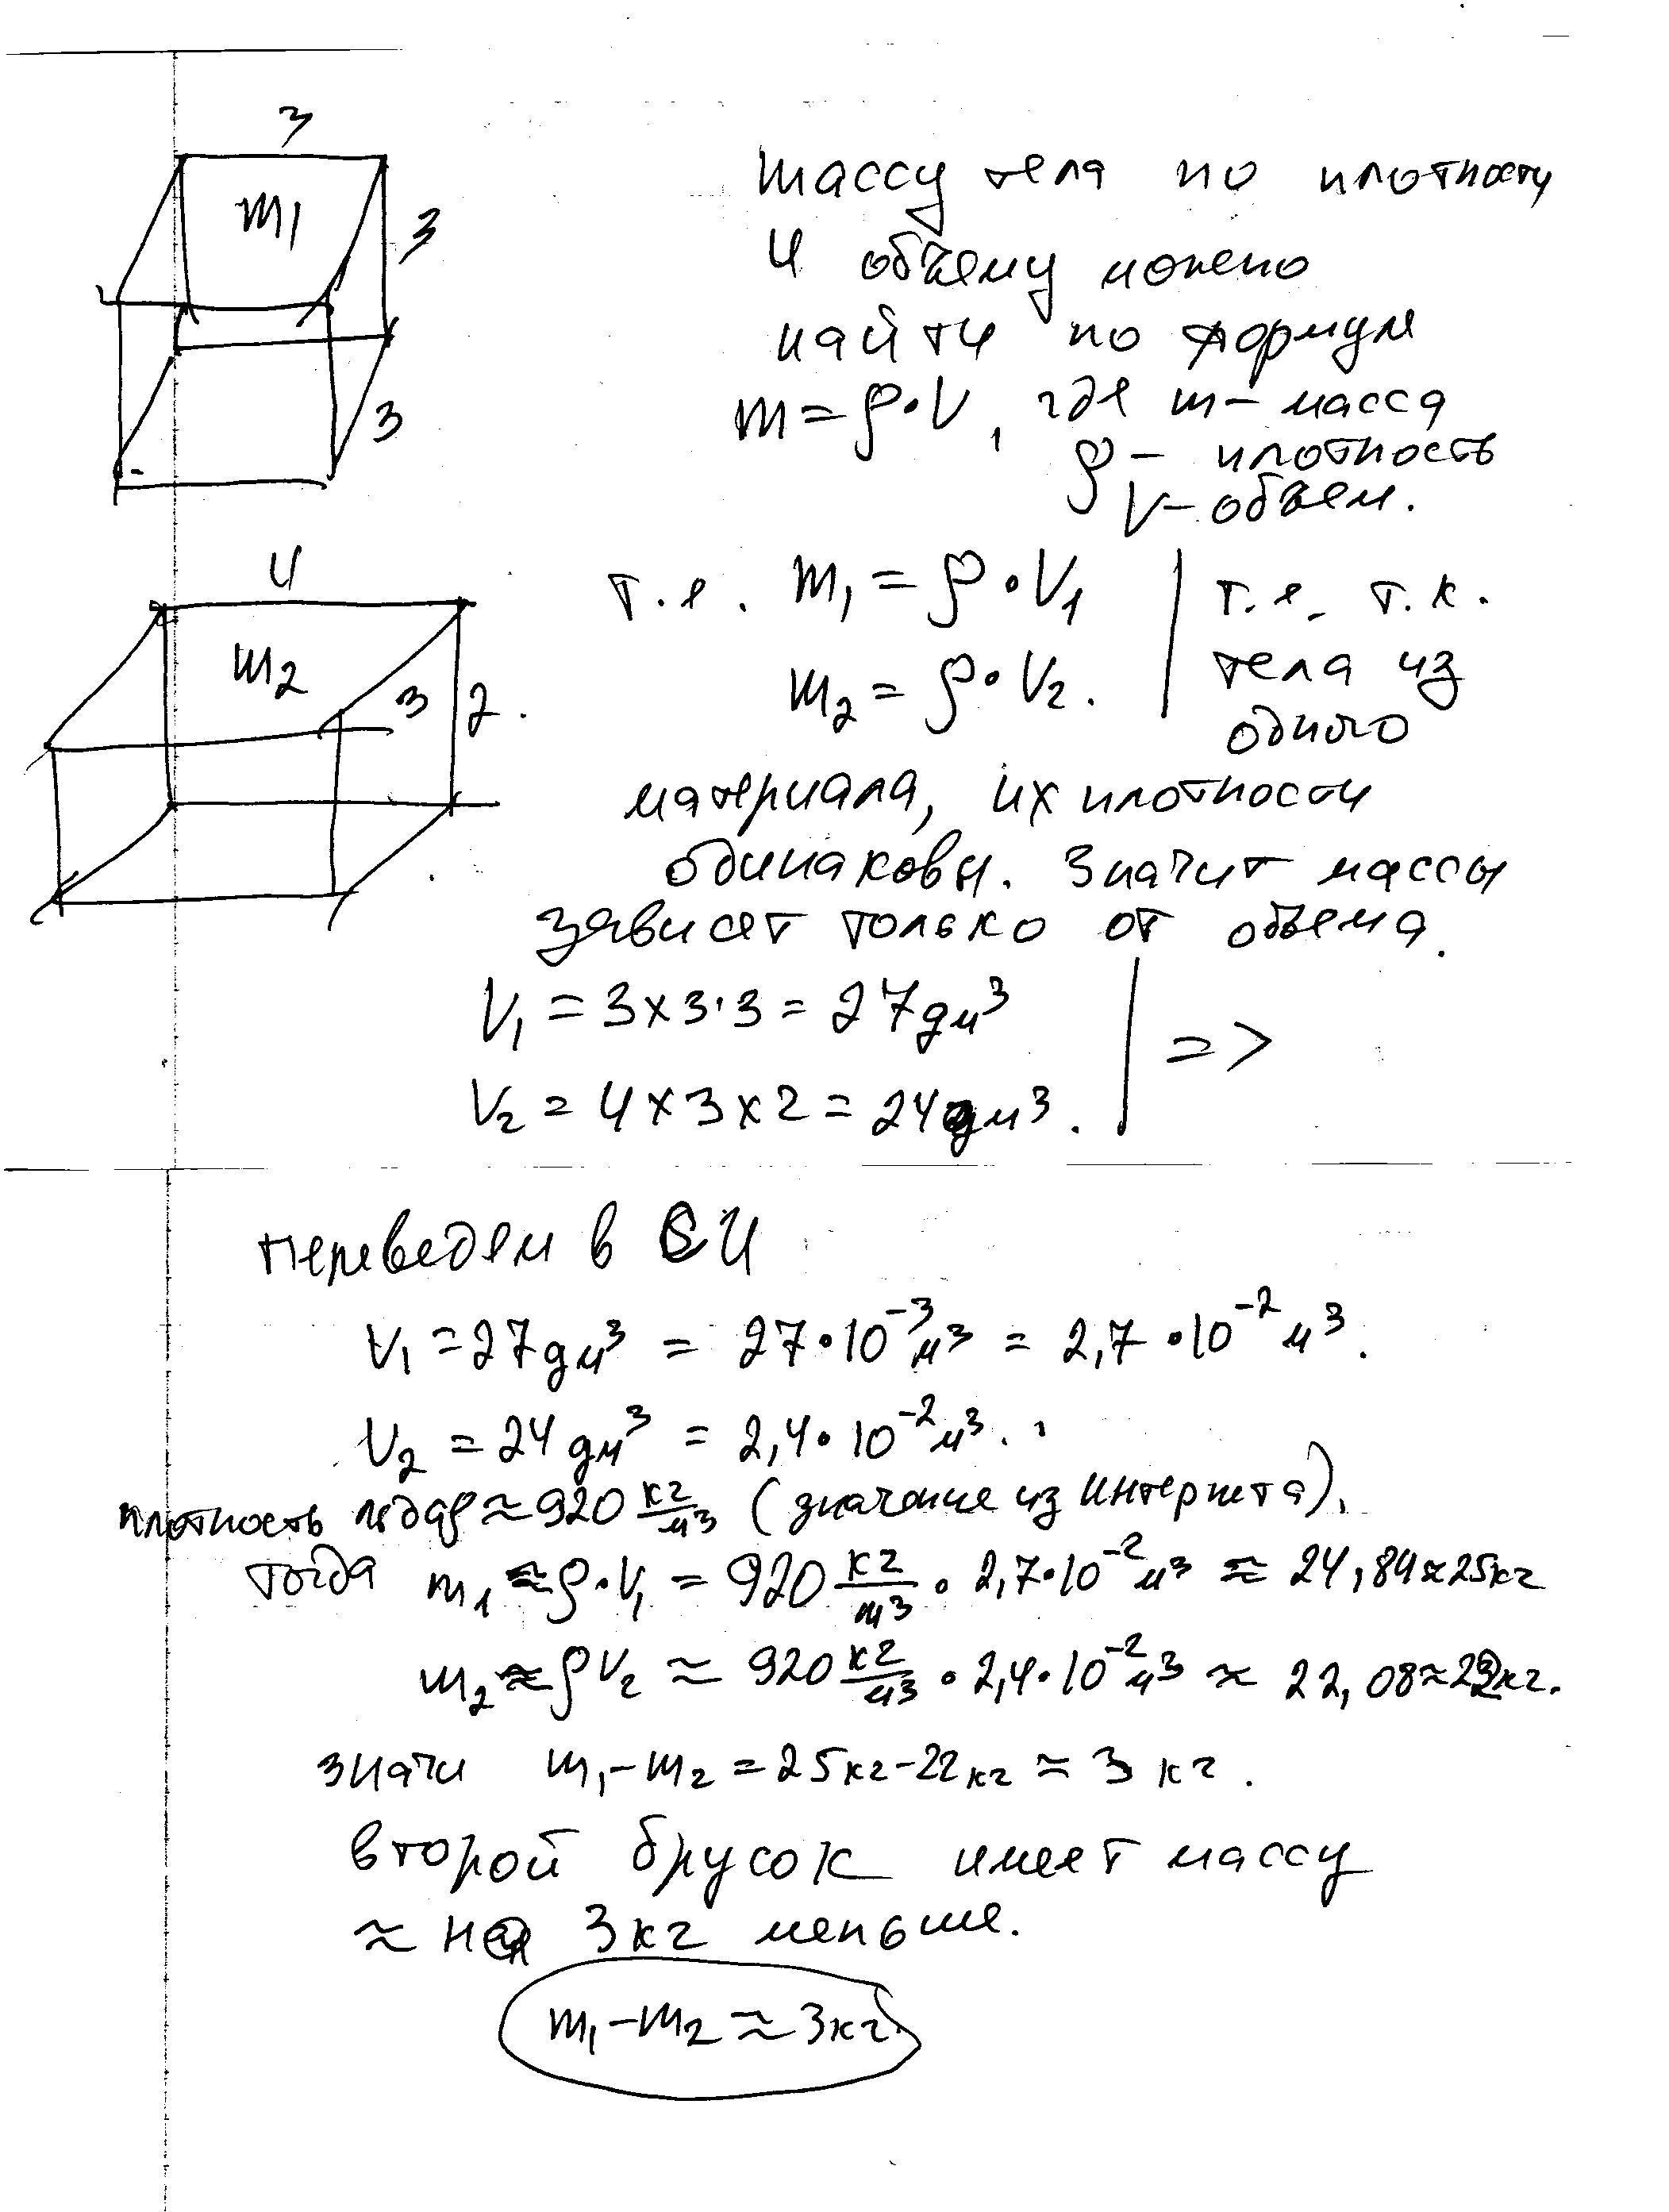 3
m₁
3
3
массу тела по плотности
и объему можно
найти по формуле
m = ρ·V, где m – масса
ρ – плотность
V – объем.
4
m₂
3
2.
т.е. m₁ = ρ·V₁
m₂ = ρ·V₂.
т.е. т.к.
тела из
одного
материала, их плотности
одинаковы. Значит массы
зависят только от объема.
V₁ = 3 x 3·3 = 27 дм³
V₂ = 4 x 3 x 2 = 24 дм³.
=>
переведем в СИ
V₁ = 27 дм³ = 27·10⁻³ м³ = 2,7·10⁻² м³.
V₂ = 24 дм³ = 2,4·10⁻² м³.
плотность льда ρ ≈ 920 кг/м³ (значение из интернета).
тогда m₁ ≈ ρ·V₁ = 920 кг/м³ · 2,7·10⁻² м³ ≈ 24,84 ≈ 25 кг
m₂ ≈ ρV₂ ≈ 920 кг/м³ · 2,4·10⁻² м³ ≈ 22,08 ≈ 22 кг.
значи m₁ – m₂ = 25 кг – 22 кг ≈ 3 кг.
второй брусок имеет массу
≈ на 3 кг меньше.
m₁ – m₂ ≈ 3 кг.